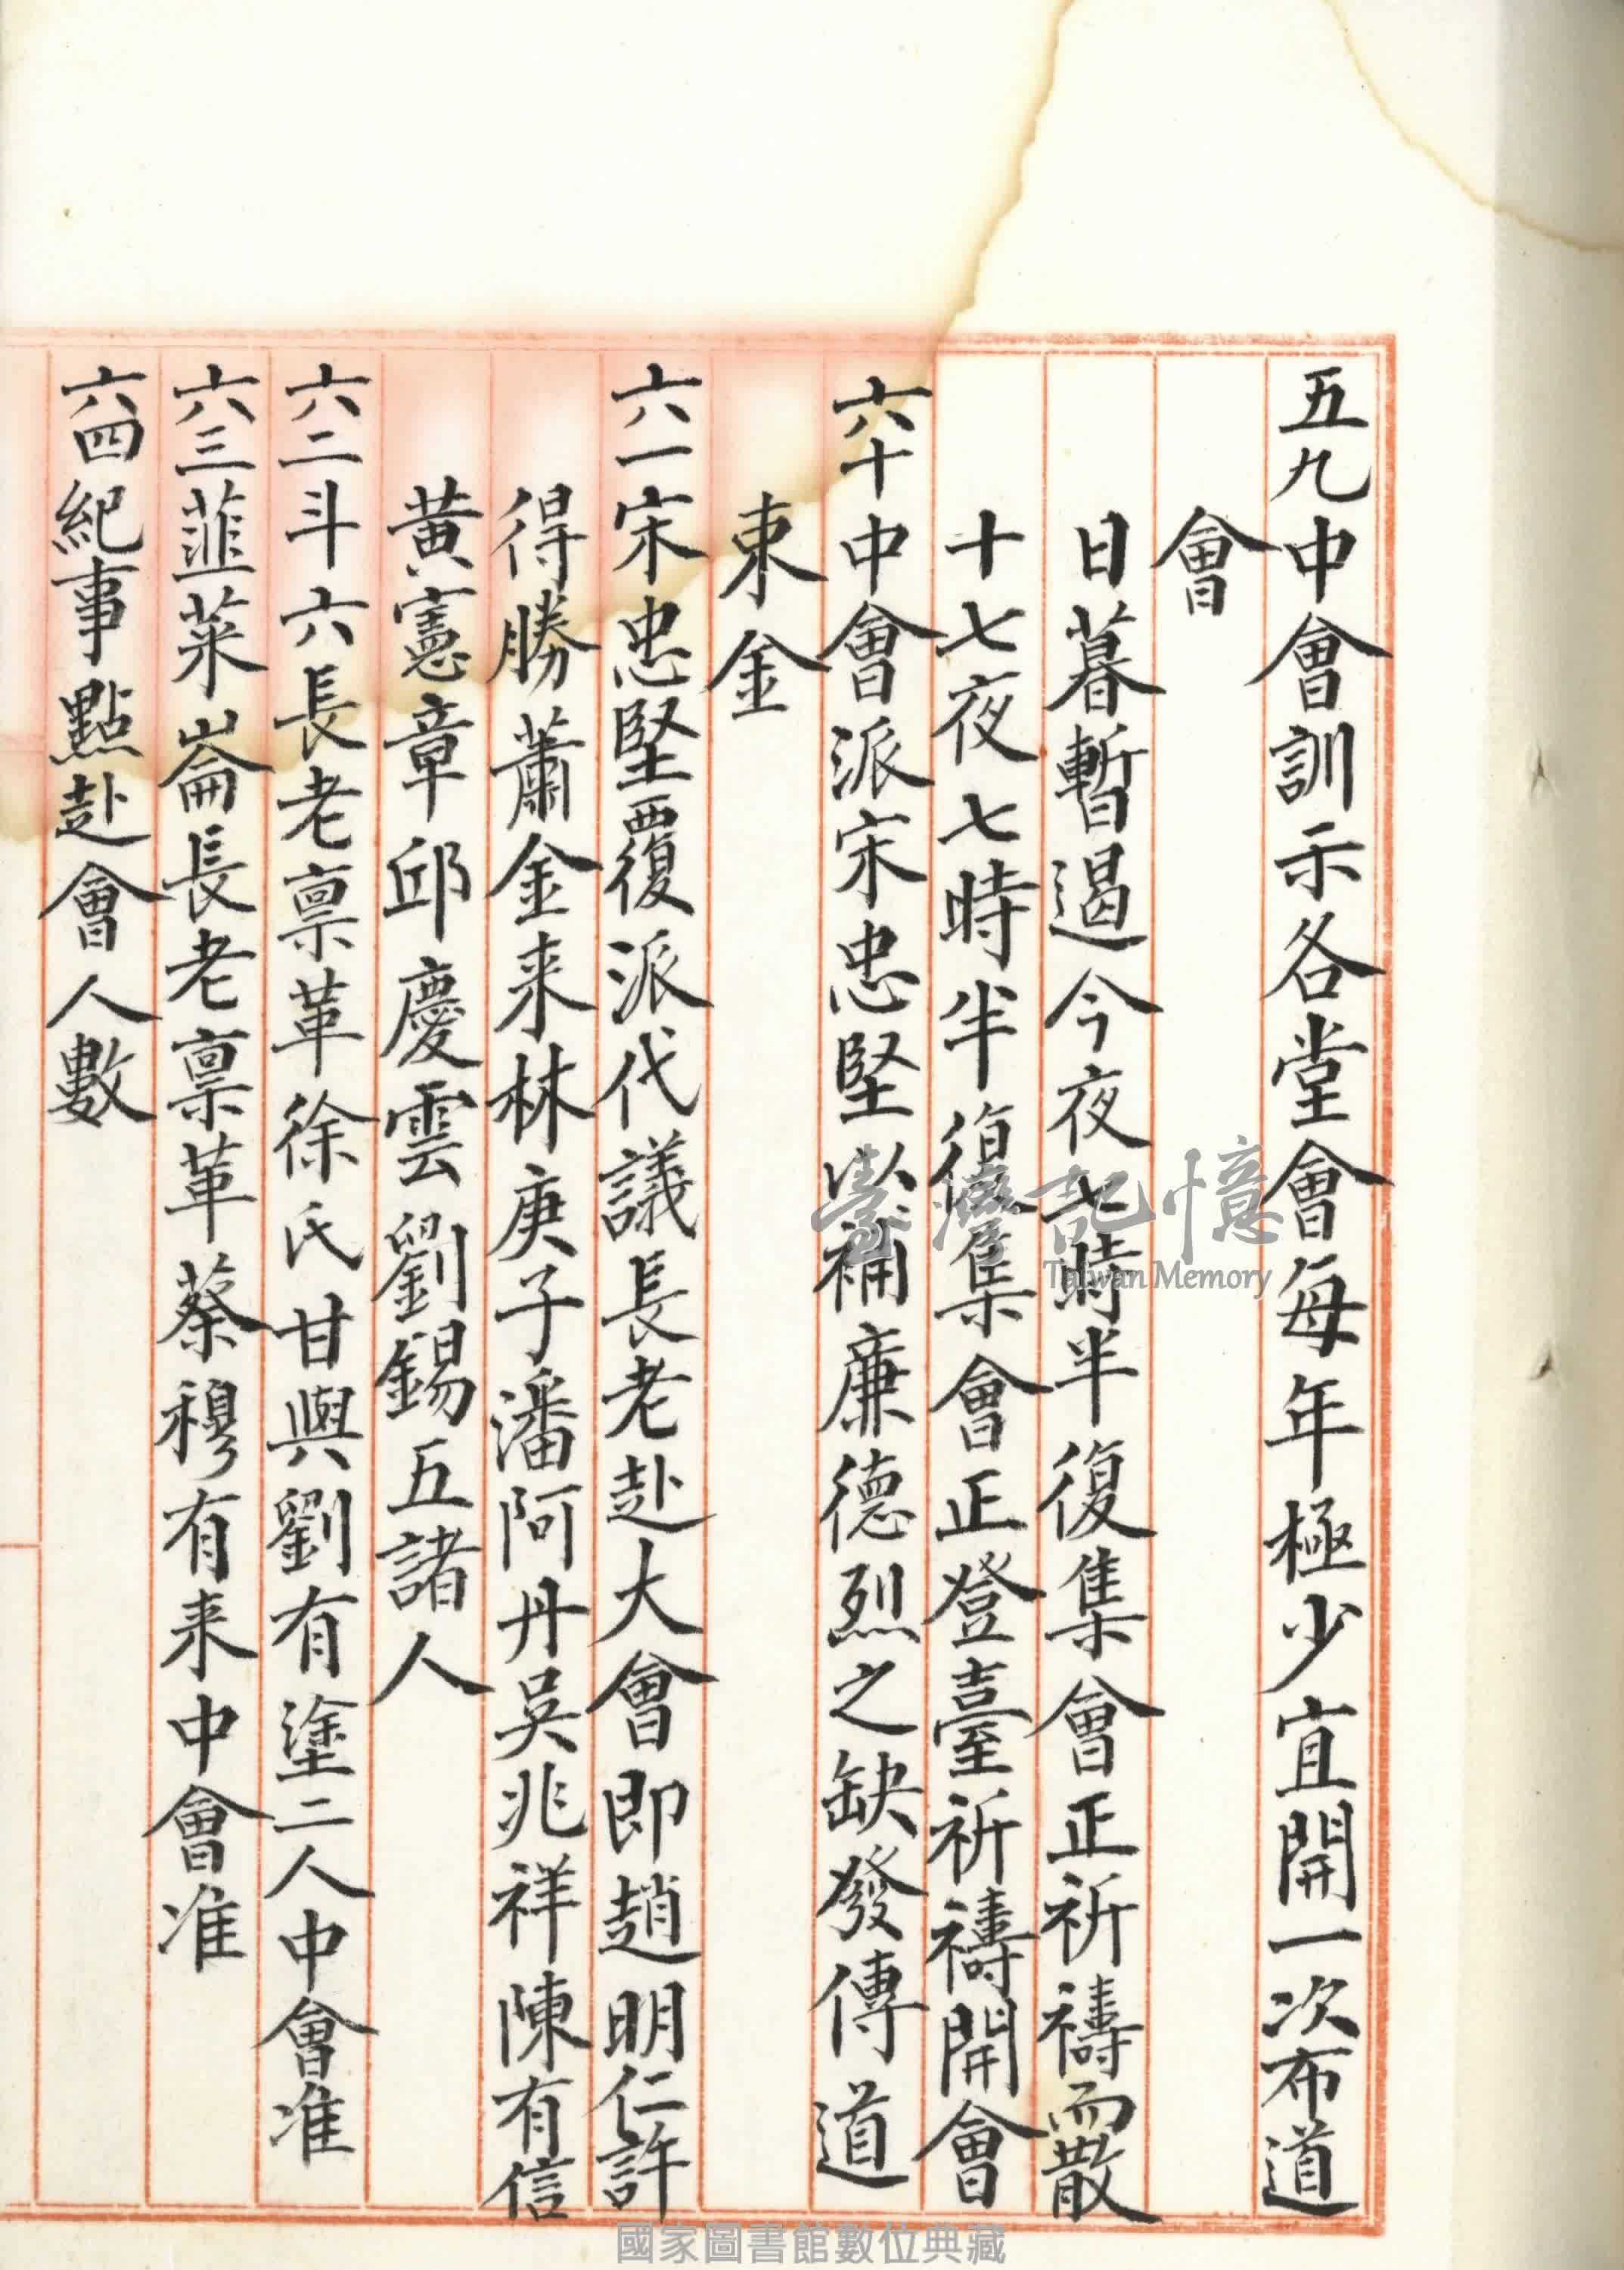 五九中會訓示各堂會每年極少宜開一次布道
會
日暮暫遏今夜七時半復集會正祈禱而散
十七夜七時半復集會正登臺祈禱開會
六十中會派宋忠堅以補廉德烈之缺發傳道
束金
六一宋忠堅覆派代議長老赴大會即趙明仁許
得勝蕭金来林庚子潘阿丹吳兆祥陳有信
黃憲章邱慶雲劉錫五諸人
六二斗六長老禀革徐氏甘與劉有塗二人中會准
六三韮菜崙長老禀革蔡穆有来中會准
六四紀事點赴會人數
臺灣記憶
Taiwan Memory
國家圖書館數位典藏